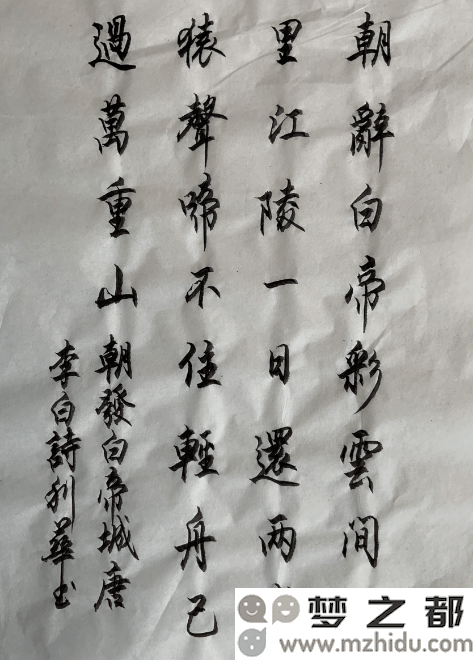 朝辭白帝彩雲间
里江陵一日還两
猿聲啼不住輕舟已
過萬重山
朝發白帝城唐
李白詩刘華书
梦之都
www.mzhidu.com